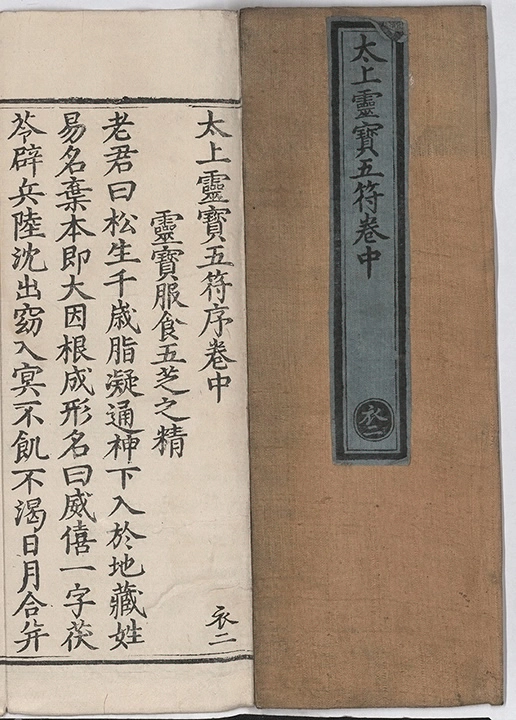 太上靈寶五符卷中
衣二
太上靈寶五符序卷中
衣二
靈寶服食五芝之精
老君曰松生千歳脂凝通神下入於地藏姓
易名棄本即大因根成形名曰威僖一字茯
苓辟兵陸沈出窈入㝠不飢不渴日月合并